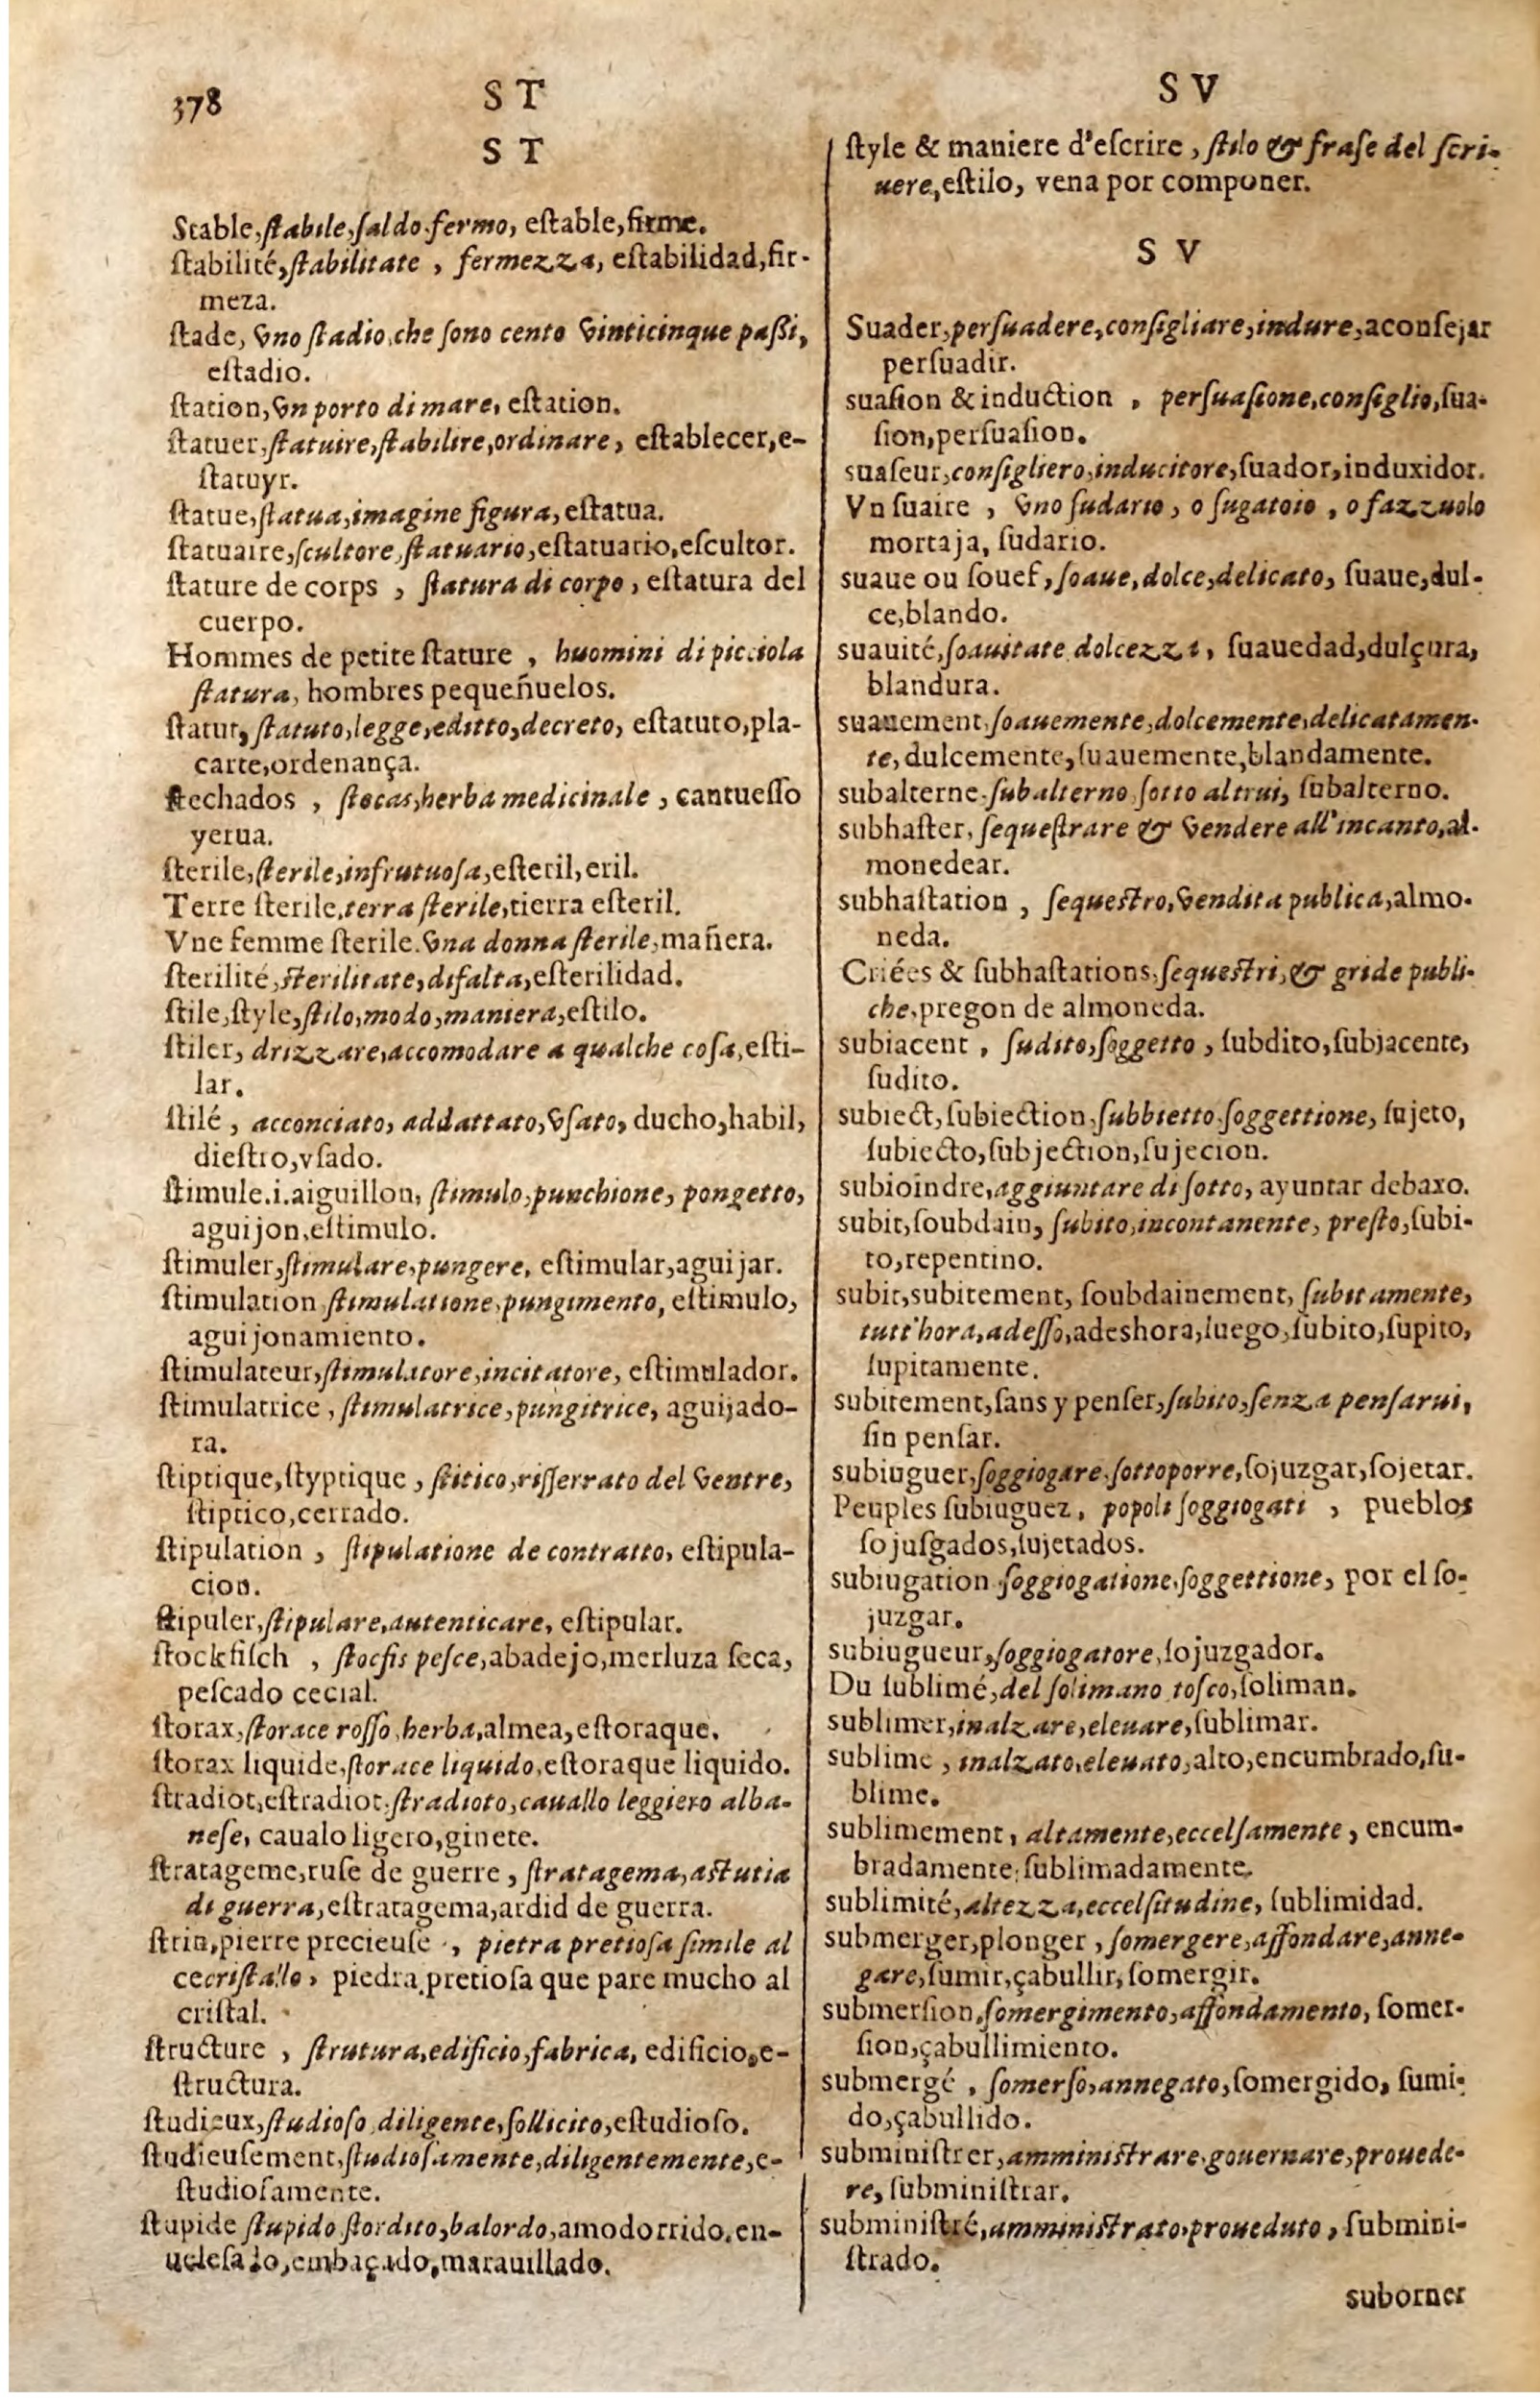 378
S T
S T
Stable, ſtabile, ſaldo, fermo, eſtable, firme.
ſtabilité, ſtabilitate, fermezza, eſtabilidad, fir-
meza.
ſtade, vno ſtadio, che ſono cento vinticinque paßi,
eſtadio.
ſtation, vn porto di mare, eſtation.
ſtatuer, ſtatuire, ſtabilire, ordinare, eſtablecer, e-
ſtatuyr.
ſtatue, ſtatua, imagine figura, eſtatua.
ſtatuaire, ſcultore, ſtatuario, eſtatuario, eſcultor.
ſtature de corps, ſtatura di corpo, eſtatura del
cuerpo.
Hommes de petite ſtature, huomini di picciola
ſtatura, hombres pequeñuelos.
ſtatut, ſtatuto, legge, editto, decreto, eſtatuto, pla-
carte, ordenança.
ſtechados, ſtecas, herba medicinale, cantueſſo
yerua.
ſterile, ſterile, infrutuoſa, eſteril, eril.
Terre ſterile, terra ſterile, tierra eſteril.
Vne femme ſterile. vna donna ſterile, mañera.
ſterilité, ſterilitate, difalta, eſterilidad.
ſtile, ſtyle, ſtilo, modo, maniera, eſtilo.
ſtiler, drizzare, accomodare a qualche coſa, eſti-
lar.
ſtilé, acconciato, addattato, vſato, ducho, habil,
dieſtro, vſado.
ſtimule.i.aiguillon, ſtimulo, punchione, pongetto,
aguijon, eſtimulo.
ſtimuler, ſtimulare, pungere, eſtimular, aguijar.
ſtimulation, ſtimulatione, pungimento, eſtimulo,
aguijonamiento.
ſtimulateur, ſtimulatore, incitatore, eſtimulador.
ſtimulatrice, ſtimulatrice, pungitrice, aguijado-
ra.
ſtiptique, ſtyptique, ſtitico, riſſerrato del ventre,
ſtiptico, cerrado.
ſtipulation, ſtipulatione de contratto, eſtipula-
cion.
ſtipuler, ſtipulare, autenticare, eſtipular.
ſtockfiſch, ſtocfis peſce, abadejo, merluza ſeca,
peſcado cecial.
ſtorax, ſtorace roſſo, herba, almea, eſtoraque.
ſtorax liquide, ſtorace liquido, eſtoraque liquido.
ſtradiot, eſtradiot, ſtradioto, cauallo leggiero alba-
neſe, caualo ligero, ginete.
ſtratageme, ruſe de guerre, ſtratagema, aſtutia
di guerra, eſtratagema, ardid de guerra.
ſtrin, pierre precieuſe, pietra pretioſa ſimile al
cecriſtallo, piedra pretioſa que pare mucho al
criſtal.
ſtructure, ſtrutura, edificio, fabrica, edificio, e-
ſtructura.
ſtudieux, ſtudioſo, diligente, ſollicito, eſtudioſo.
ſtudieuſement, ſtudioſamente, diligentemente, e-
ſtudioſamente.
ſtupide ſtupido ſtordito, balordo, amodorrido, en-
ueleſado, embaçado, marauillado.
S V
ſtyle & maniere d'eſcrire, ſtilo & fraſe del ſcri-
uere, eſtilo, vena por componer.
S V
Suader, perſuadere, conſigliare, indure, aconſejar
perſuadir.
suaſion & induction, perſuaſione, conſiglio, ſua-
ſion, perſuaſion.
suaſeur, conſigliero, inducitore, ſuador, induxidor.
Vn ſuaire, vno ſudario, o ſugatoio, o fazzuolo
mortaja, ſudario.
suaue ou ſouef, ſoaue, dolce, delicato, ſuaue, dul-
ce, blando.
suauité, ſoauitate, dolcezza, ſuauedad, dulçura,
blandura.
suauement, ſoauemente, dolcemente, delicatamen-
te, dulcemente, ſuauemente, blandamente.
subalterne, ſubalterno ſotto altrui, ſubalterno.
subhaſter, ſequeſtrare & vendere all'incanto, al-
monedear.
subhaſtation, ſequeſtro, vendita publica, almo-
neda.
Criées & ſubhaſtations, ſequeſtri, & gride publi-
che, pregon de almoneda.
subiacent, ſudito, ſoggetto, ſubdito, ſubjacente,
ſudito.
subiect, ſubiection, ſubbietto, ſoggettione, ſujeto,
ſubiecto, ſubjection, ſujecion.
subioindre, aggiuntare di ſotto, ayuntar debaxo.
subit, ſoubdain, ſubito, incontanente, preſto, ſubi-
to, repentino.
subit, subitement, ſoubdainement, ſubitamente,
tutt'hora, adeſſo, adeshora, luego, ſubito, ſupito,
ſupitamente.
subitement, ſans y penſer, ſubito, ſenza penſarui,
ſin penſar.
subiuguer, ſoggiogare, ſottoporre, ſojuzgar, ſojetar.
Peuples ſubiuguez, popoli ſoggiogati, pueblos
ſojuſgados, ſujetados.
subiugation, ſoggiogatione, ſoggettione, por el ſo-
juzgar.
subiugueur, ſoggiogatore, ſojuzgador.
Du ſublimé, del ſolimano toſco, ſoliman.
sublimer, inalzare, eleuare, ſublimar.
sublime, inalzato, eleuato, alto, encumbrado, ſu-
blime.
sublimement, altamente, eccelſamente, encum-
bradamente, ſublimadamente.
sublimité, altezza, eccelſitudine, ſublimidad.
submerger, plonger, ſomergere, affondare, anne-
gare, ſumir, çabullir, ſomergir.
submerſion, ſomergimento, affondamento, ſomer-
ſion, çabullimiento.
submergé, ſomerſo, annegato, ſomergido, ſumi-
do, çabullido.
subminiſtrer, amminiſtrare, gouernare, prouede-
re, ſubminiſtrar.
subminiſtré, amminiſtrato, proueduto, ſubmini-
ſtrado.
suborner